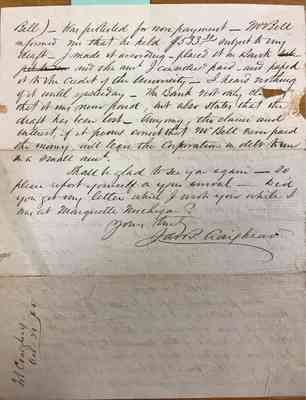 Bell) - Has protested for non payment - Mr Bell
informed me that he held $53 subject to my
draft - I made it according - placed it in Bank
and the amt I consider paid - and passed
it to the credit of the University - I heard nothing
of it until yesterday - The Bank not only
that it was never paid, but also states that the
draft has been lost - Any way, the claim and
interest, if it proves correct that Mr Bell never paid
the money, will leave the Corporation in debt to me
in a small amt.
Shall be glad to see you again - so
please report yourself on your arrival - Did
you get my letter which I wrote you while I
was at Marquette Michigan?
Yours truly
Craighead
Craighead
Oct